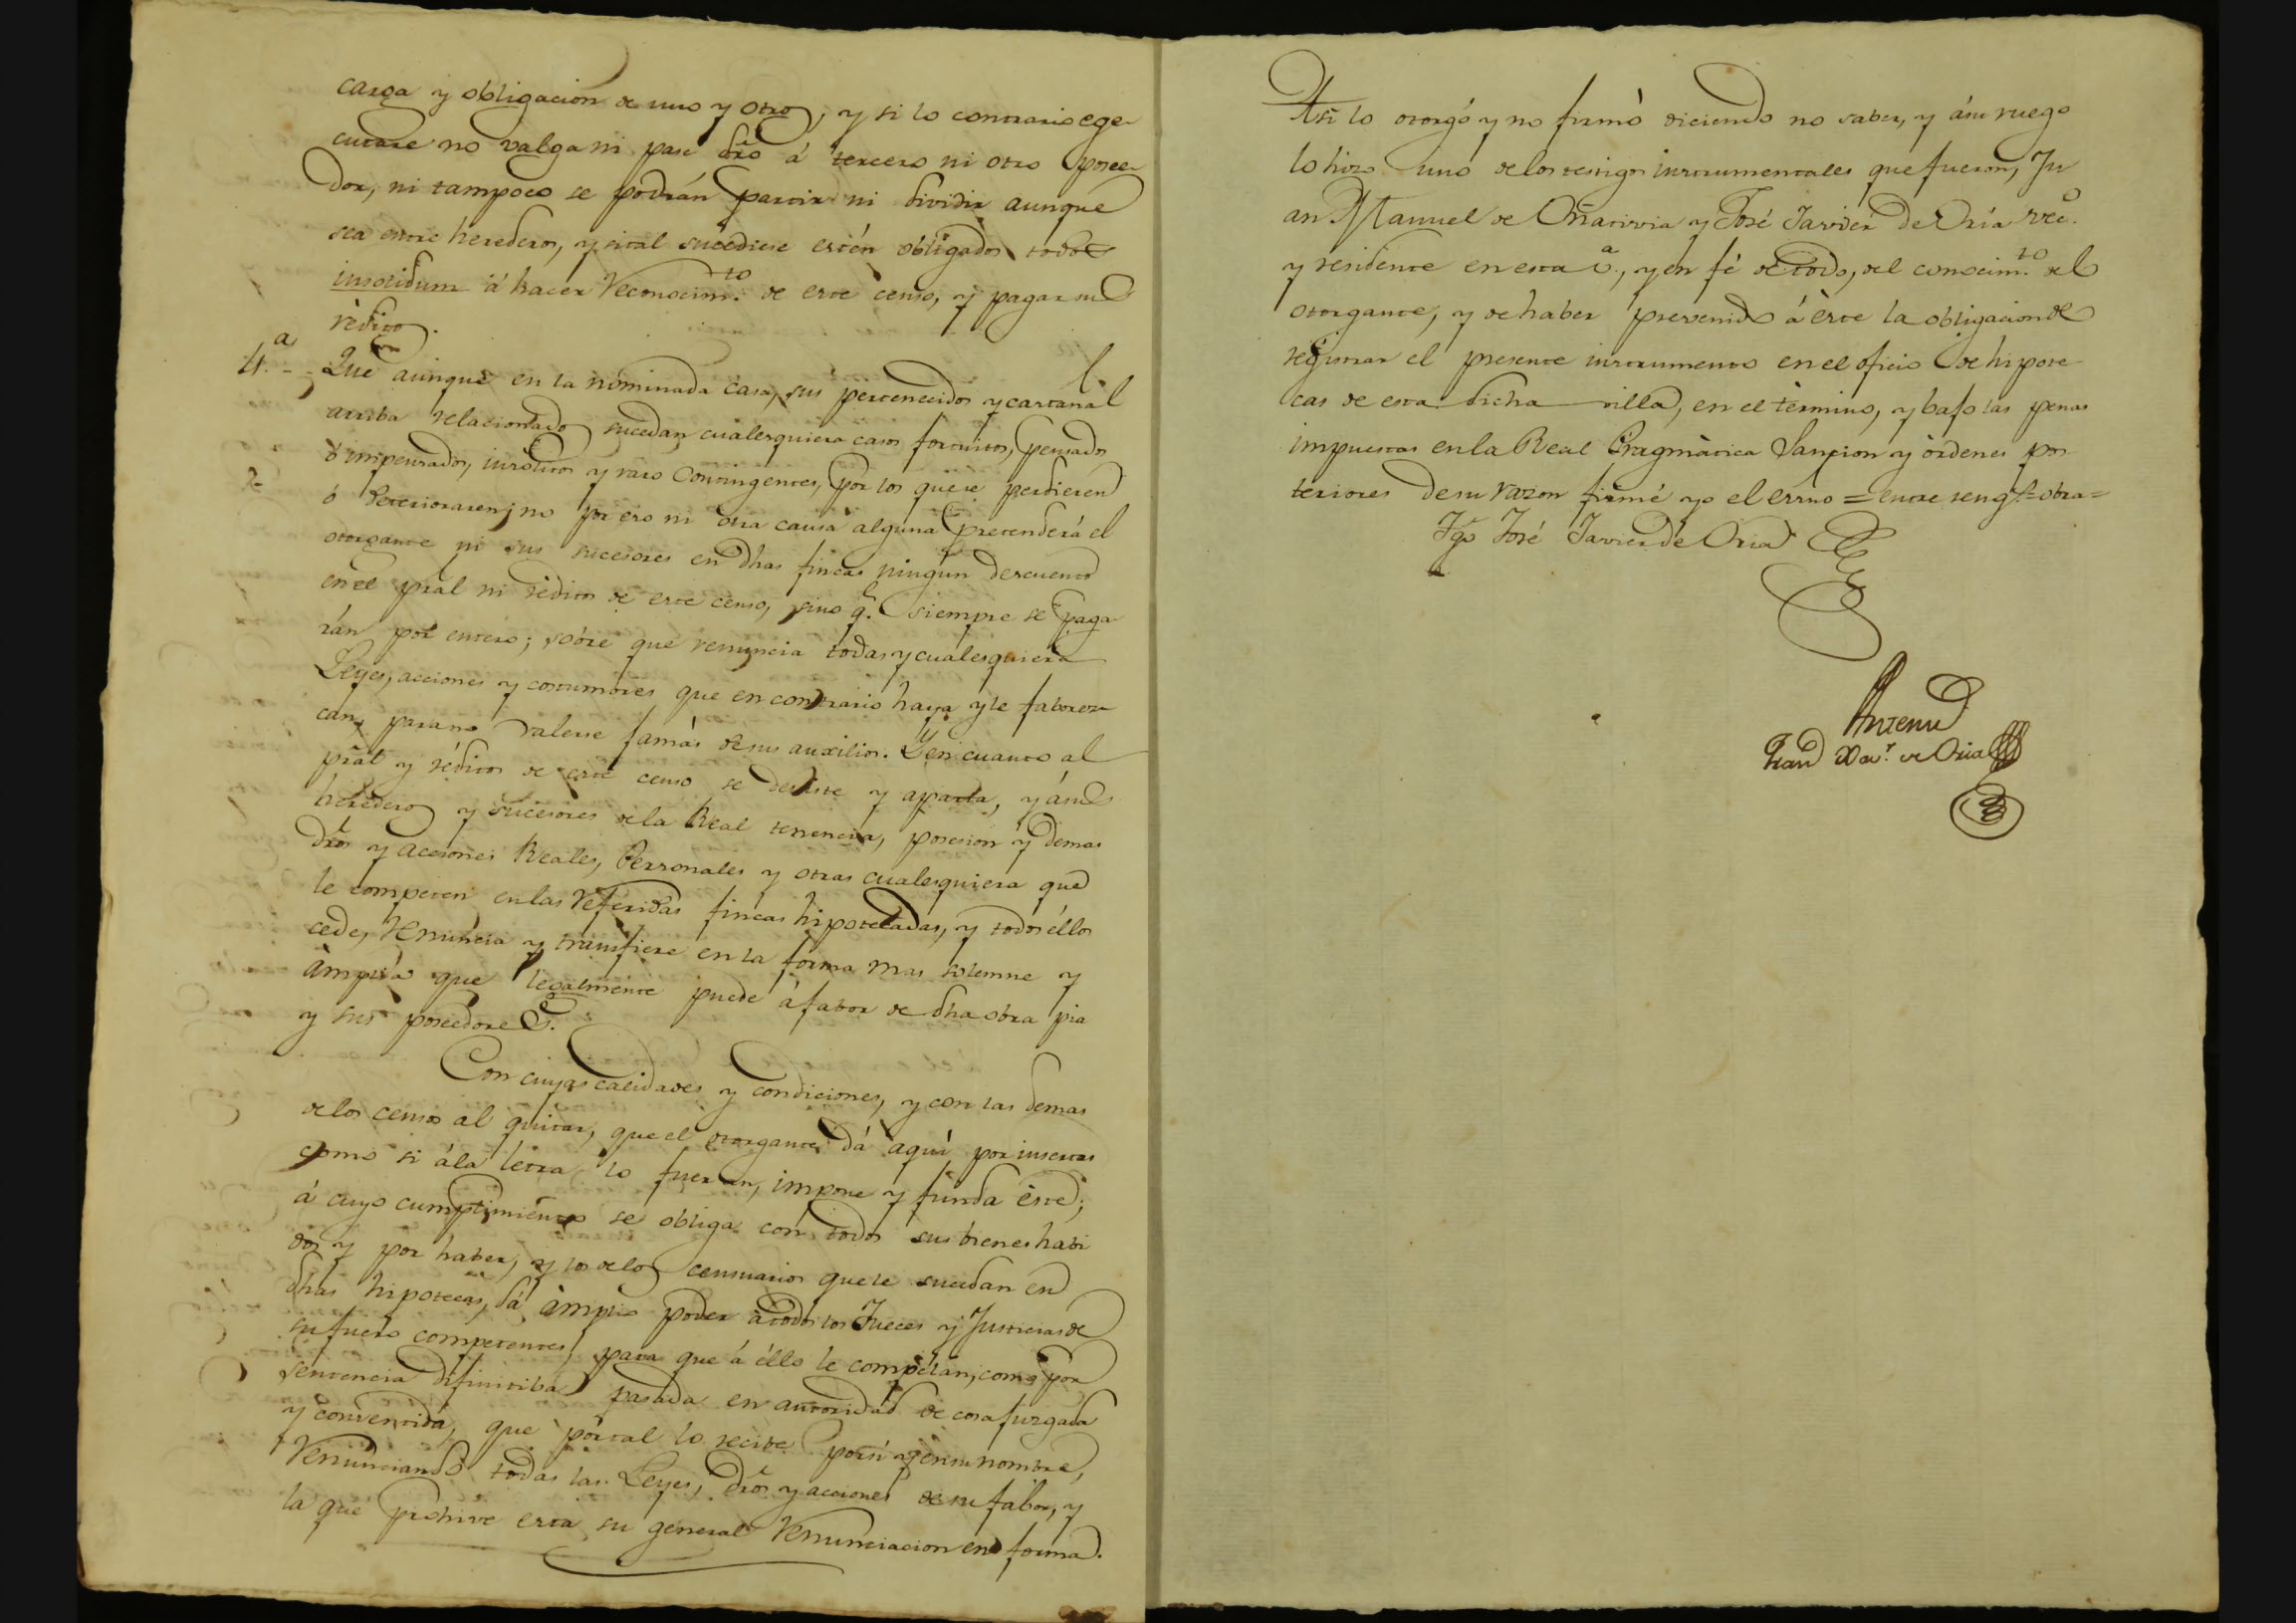 carga y obligacion de uno y otro, y si lo contrario ege-
cutare no valga ni pase dro á tercero ni otro posee-
dor, ni tampoco se podrán partir ni dividir aunque
sea entre herederos, y si tal sucediere estén obligados todos
insolidum á hacer reconocim.to de este censo, y pagar sus
réditos.
4.a - - Que aunque en la nominada casa, sus pertenecidos y castañal
arriba relacionado sucedan cualesquiera casos fortuitos, pensados
ó impensados, insólitos y raro contingentes, por los que se perdieren
ó deterioraren, no por eso ni otra causa alguna pretenderá el
otorgante ni sus sucesores en dhas fincas ningun descuento
en el pral ni réditos de este censo, sino q.e siempre se paga-
rán por entero; sobre que renuncia todas y cualesquiera
Leyes, acciones y costumbres que en contrario haya y le faborez-
can, para no valerse jamás de sus auxilios. Y en cuanto al
pral y réditos de este censo se desiste y aparta, y á sus
herederos y sucesores de la Real tenencia, posesion y demas
dros y acciones Reales, Personales y otras cualesquiera que
le competen en las referidas fincas hipotecadas, y todos éllos
cede, renuncia y transfiere en la forma mas solemne y
ámplia que legalmente puede á fabor de dha obra pia
y sus poseedores.
Con cuyas calidades y condiciones, y con las demas
de los censos al quitar, que el otorgante dá aquí por insertas
como si á la letra lo fueran, impone y funda éste;
á cuyo cumplimiento se obliga con todos sus bienes habi
dos y por haber, y los de los censuarios que le sucedan en
dhas hipotecas, dá ámplio poder á todos los Jueces y Justicias de
su fuero competentes, para que á éllo le compélan, como por
sentencia difinitiba pasada en autoridad de cosa juzgada
y consentida, que por tal lo recibe por sí y en su nombre,
renunciando todas las Leyes, dros y acciones de su fabor, y
la que prohive esta su general renunciacion en forma.
Asi lo otorgó y no firmó diciendo no saber, y á su ruego
lo hizo uno de los testigos instrumentales que fueron, Ju
an Manuel de Oñativia y José Javier de Oria vec.o
y residente en esta v.a, y en fé de todo, del conocim.to del
otorgante, y de haber prevenido á éste la obligacion de
registrar el presente instrumento en el oficio de hipote-
cas de esta dicha villa, en el término, y bajo las penas
impuestas en la Real Pragmática Sancion y órdenes pos-
teriores de su razon firmé yo el essno = entre reng.s = obra =
Tgo José Javier de Oria
Ante mi
Fran.co Xav.r de Oria